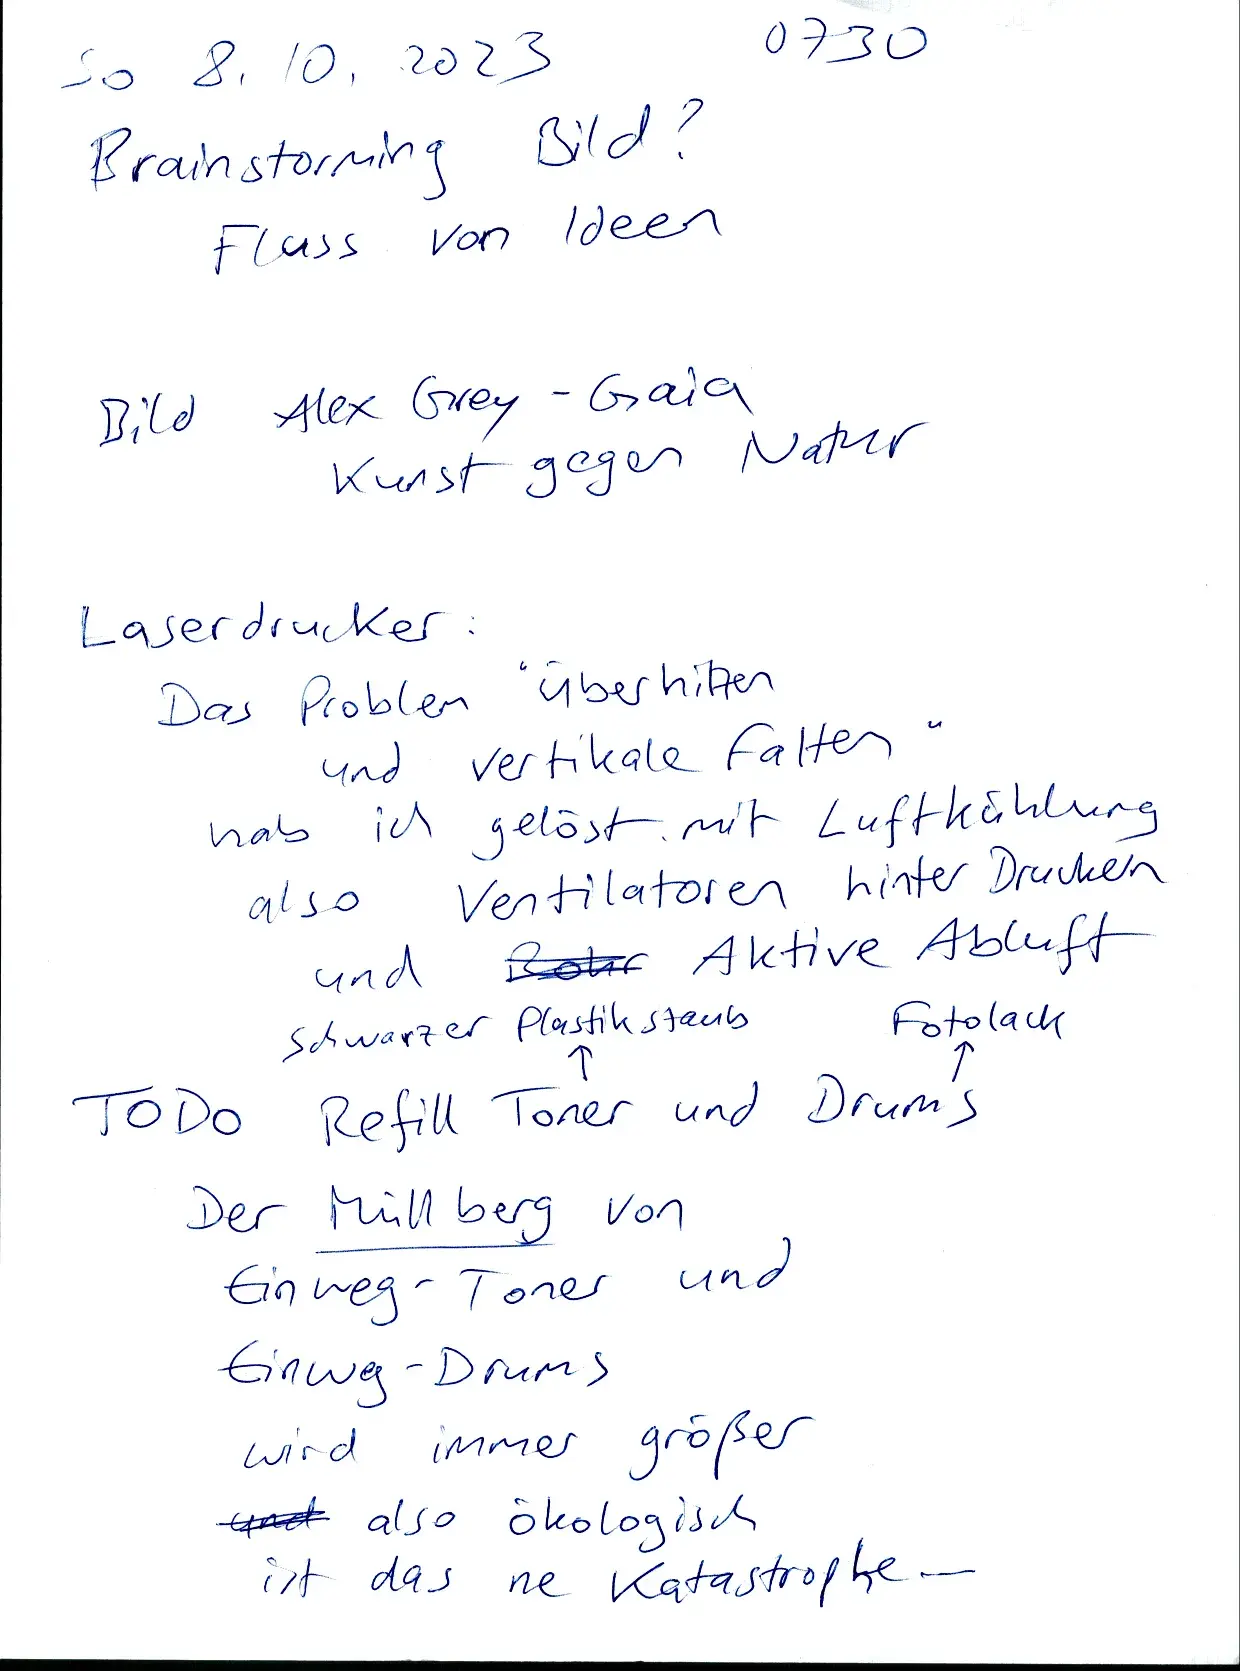 So 8.10.2023 0730
Brainstorming Bild?
Fluss von Ideen
Bild Alex Grey - Gaia
Kunst gegen Natur
Laserdrucker:
Das Problem "überhitzen
und vertikale Falten"
hab ich gelöst mit Luftkühlung
also Ventilatoren hinter Druckern
und Rohr Aktive Abluft
schwarzer Plastikstaub Fotolack
↑ ↑
TODO Refill Toner und Drums
Der Müllberg von
Einweg-Toner und
Einweg-Drums
wird immer größer
und also ökologisch
ist das ne Katastrophe —